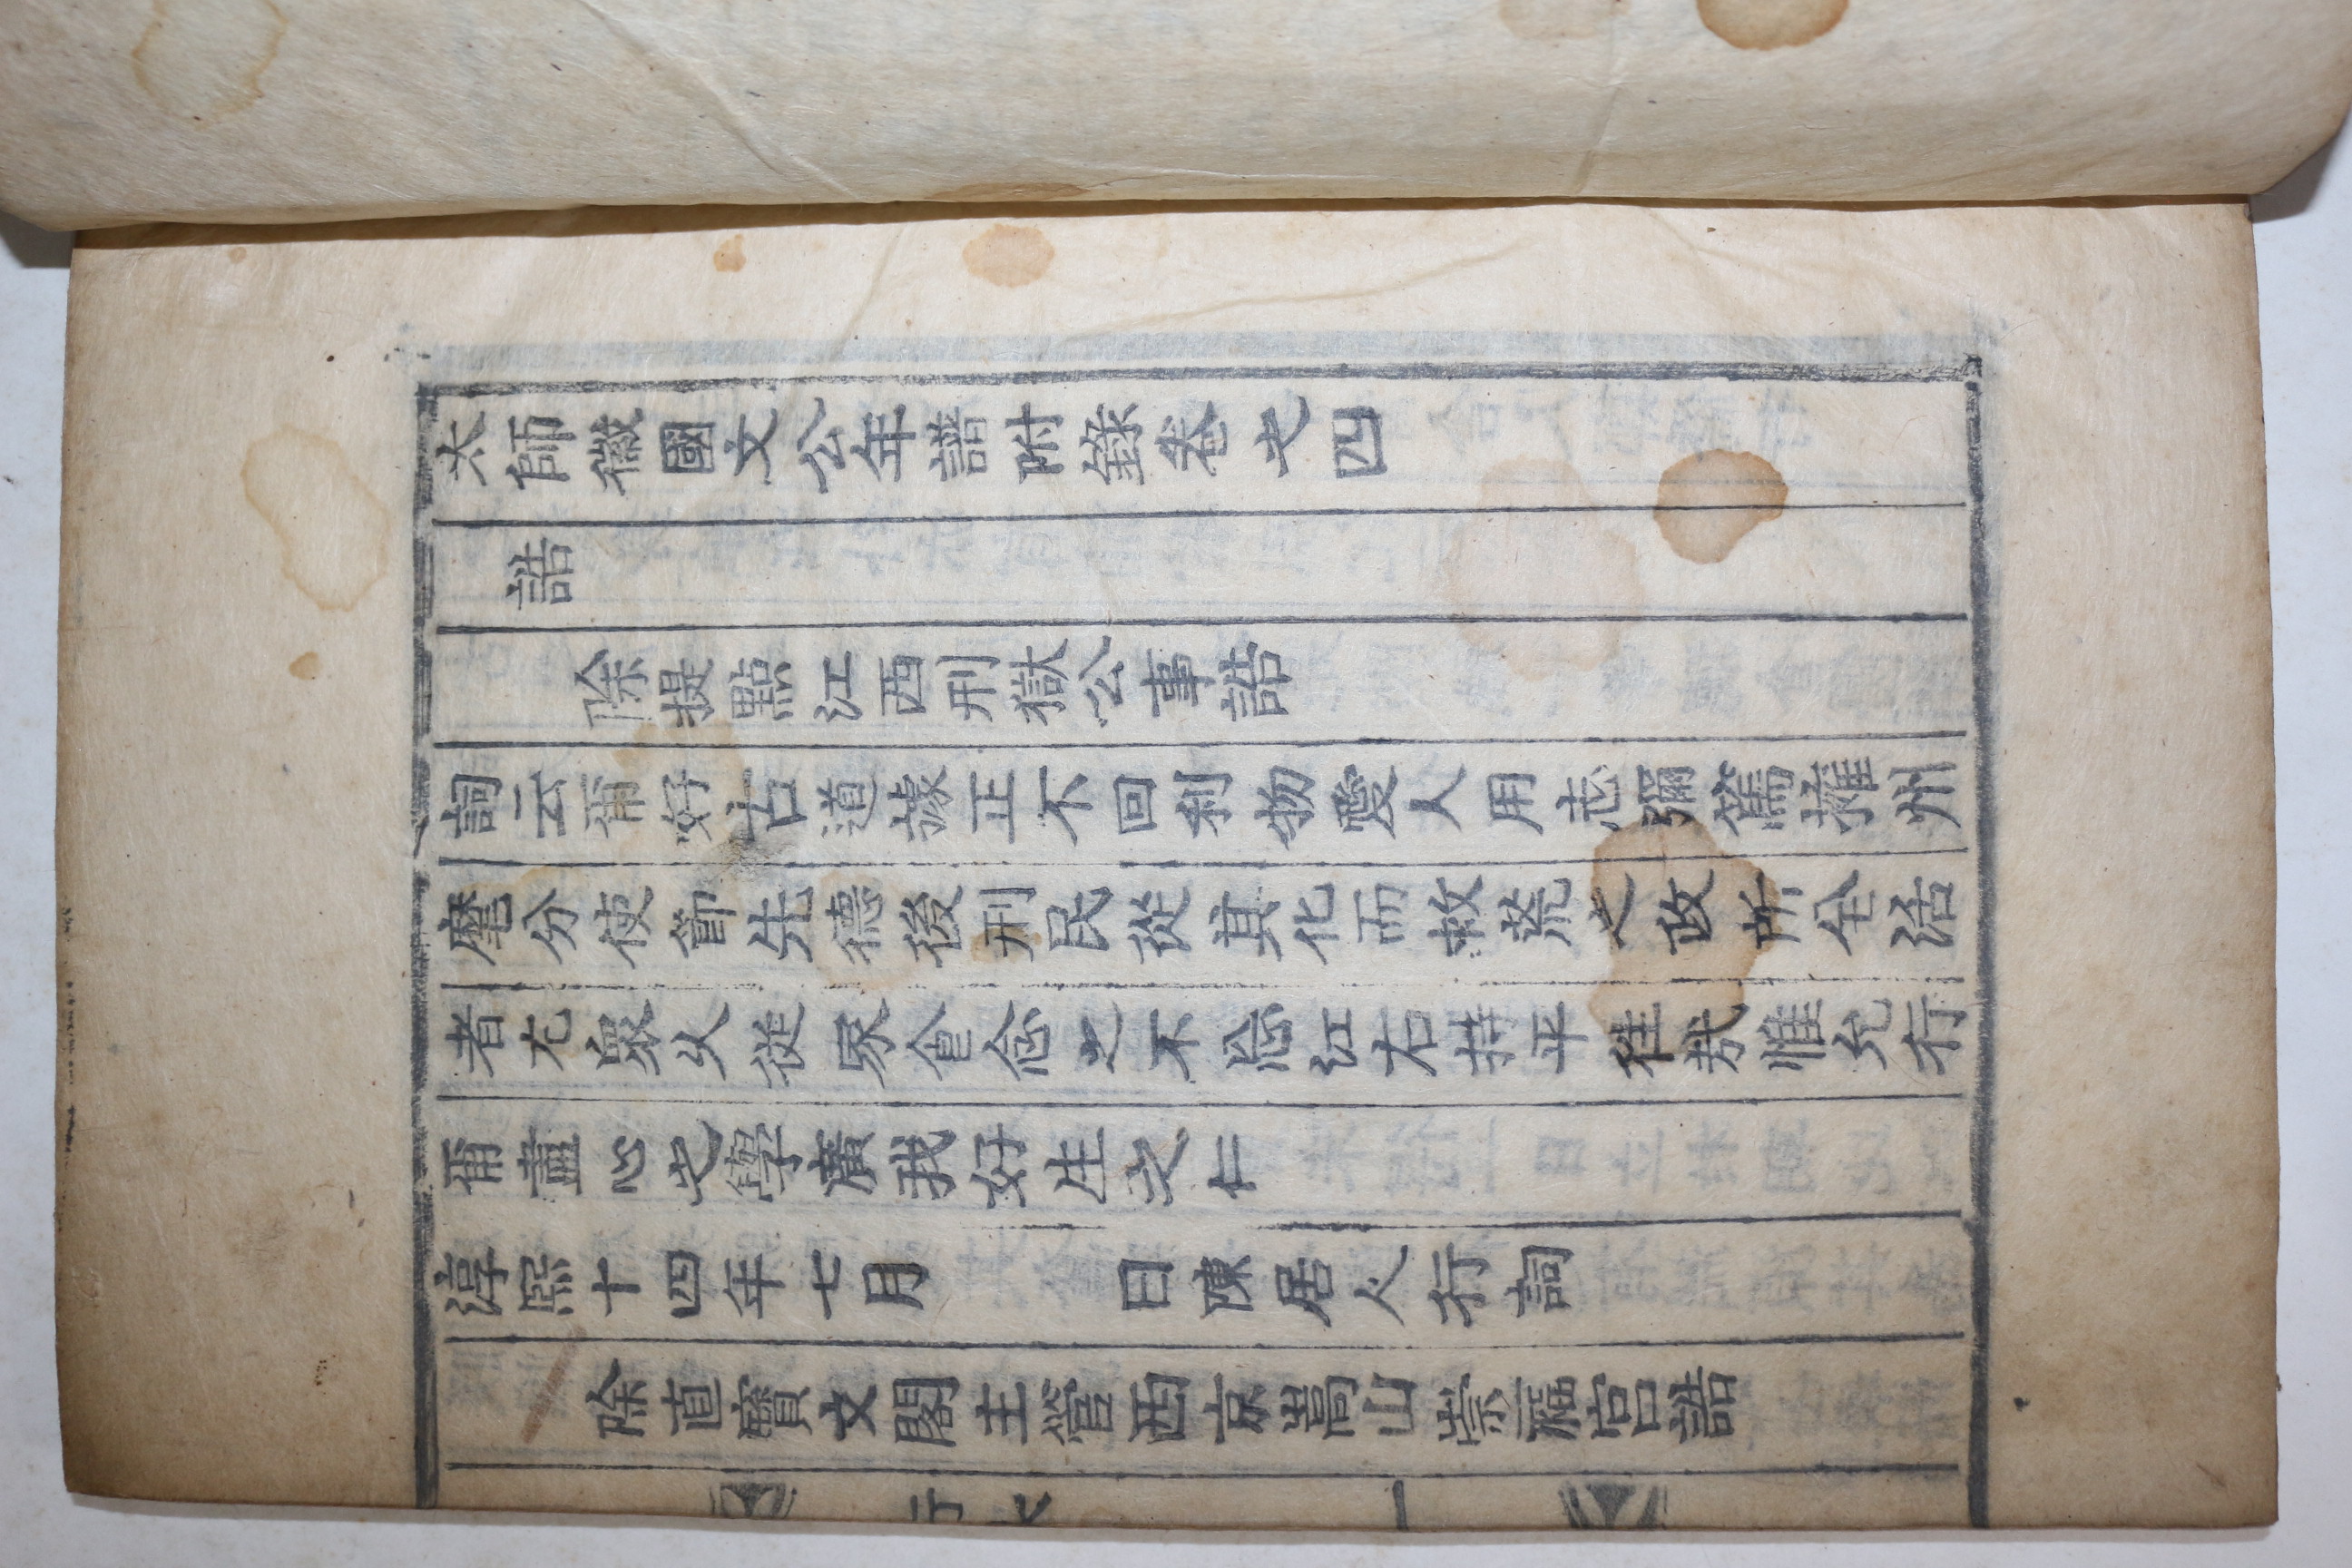 太師徽國文公年譜附錄卷之四
誥
除提點江西刑獄公事誥
詞云爾好古道據正不回利物愛人用志彌篤擁州
麾分使節先德後刑民從其化而救荒之政所全活
者尤衆火從家食念之不忘江右持平徃㢤惟允行
爾盡心之學廣我好生之仁
淳熙十四年七月　　日陳居人行詞
除直寶文閣主管西京嵩山崇福宮誥